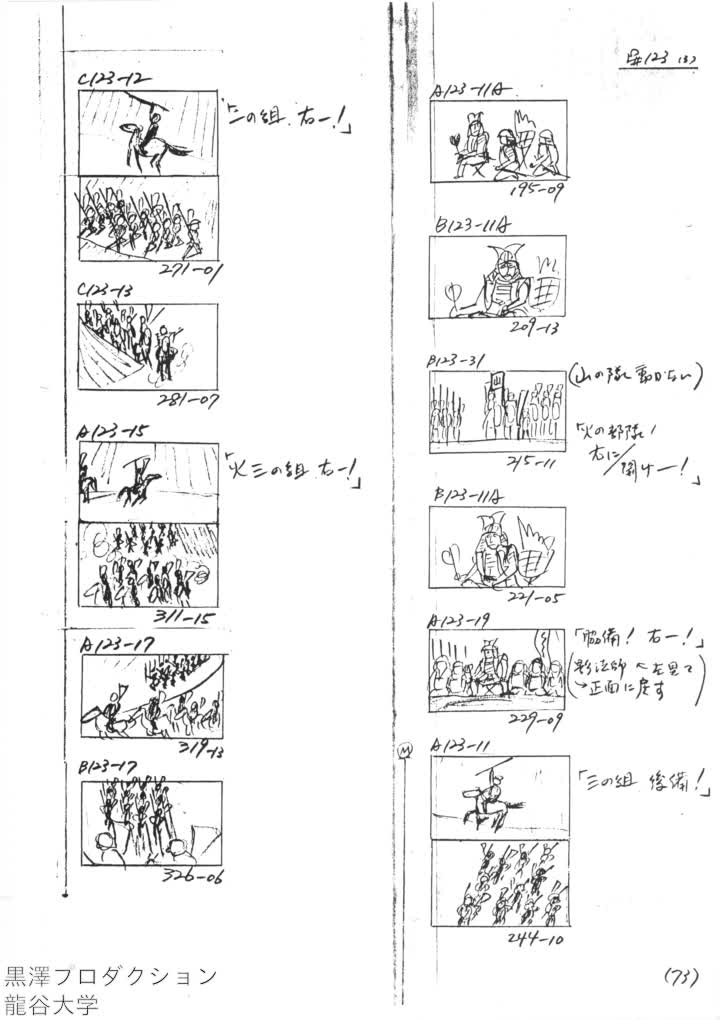 S#123 (3)
A123-11A
195-09
B123-11A
209-13
B123-31
(山の隊動かない)
215-11
「火の部隊!
右に
開けー!」
B123-11A
221-05
A123-19
「脇備! 右ー!」
(影法師 左見て
→正面に戻す)
229-09
M
A123-11
「三の組 後備!」
244-10
(73)
C123-12
「二の組 右ー!」
271-01
C123-13
281-07
A123-15
「火三の組 右ー!」
311-15
A123-17
319-13
B123-17
326-06
山
黒澤プロダクション
龍谷大学